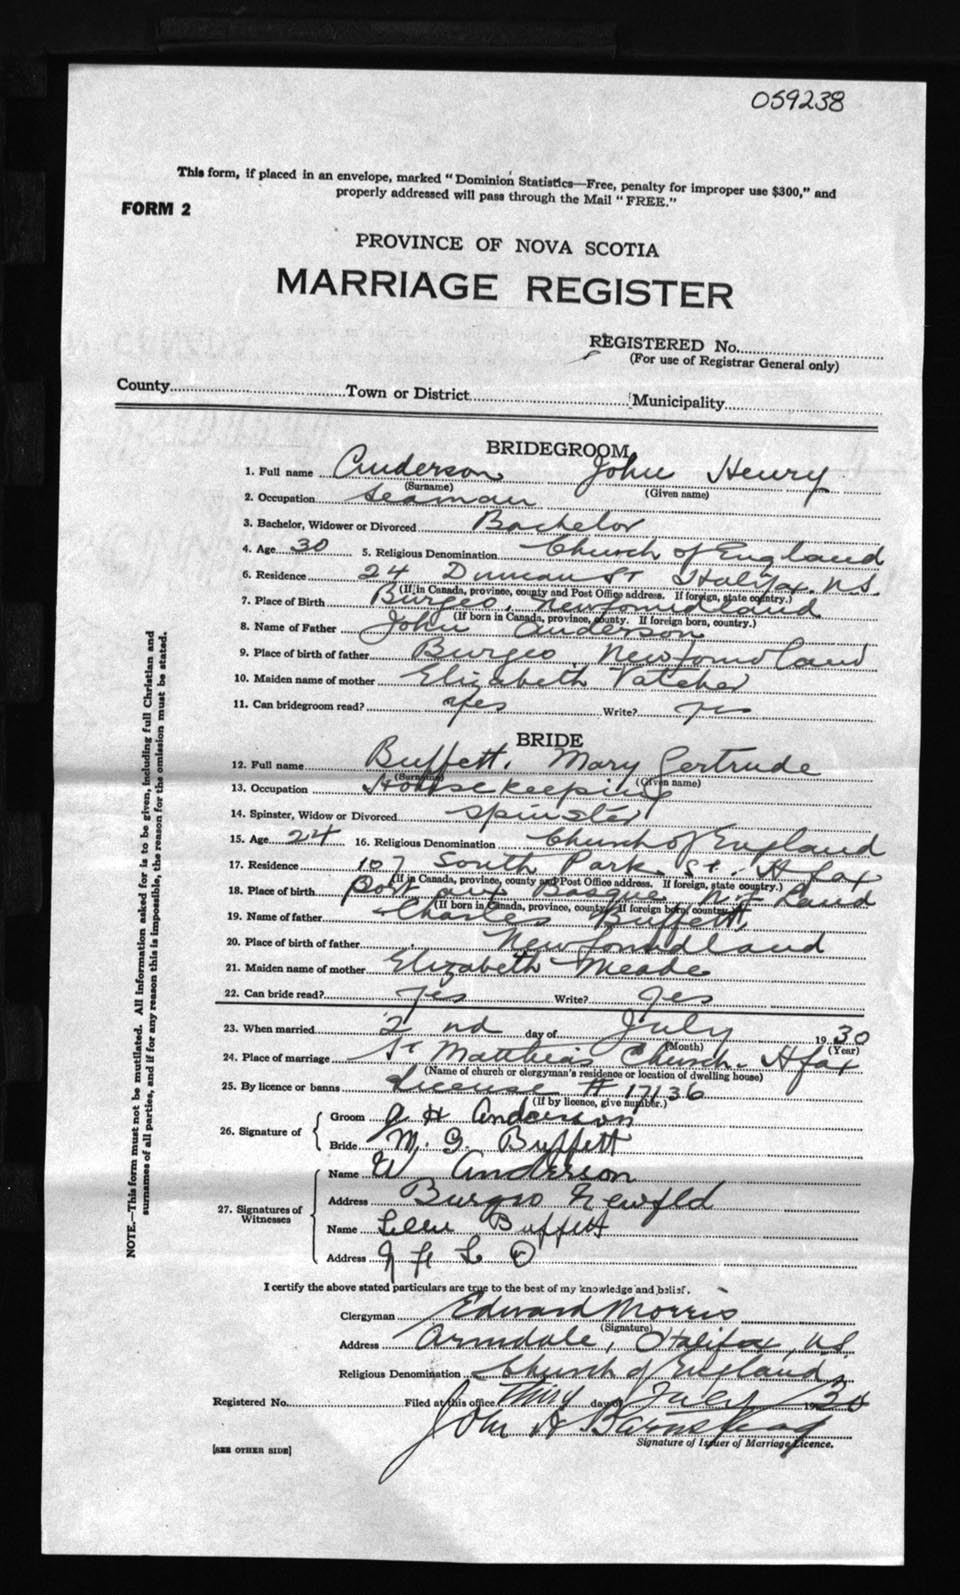 059238
This form, if placed in an envelope, marked "Dominion Statistics—Free, penalty for improper use $300," and
properly addressed will pass through the Mail "FREE."
FORM 2
PROVINCE OF NOVA SCOTIA
MARRIAGE REGISTER
REGISTERED No.
(For use of Registrar General only)
County Town or District Municipality
BRIDEGROOM
1. Full name Anderson John Henry
(Surname) (Given name)
2. Occupation Seaman
3. Bachelor, Widower or Divorced Bachelor
4. Age 30 5. Religious Denomination Church of England
6. Residence 24 Duncan St Halifax. N.S.
(If in Canada, province, county and Post Office address. If foreign, state country.)
7. Place of Birth Burgeo, Newfoundland
(If born in Canada, province, county. If foreign born, country.)
8. Name of Father John Anderson
9. Place of birth of father Burgeo, Newfoundland
10. Maiden name of mother Elizabeth Vatcher
11. Can bridegroom read? yes Write? yes
BRIDE
12. Full name Buffett. Mary Gertrude
(Surname) (Given name)
13. Occupation Housekeeping
14. Spinster, Widow or Divorced Spinster
15. Age 24 16. Religious Denomination Church of England
17. Residence 107 South Park St. Hfax
(If in Canada, province, county and Post Office address. If foreign, state country.)
18. Place of birth Port aux Basque Nf land
(If born in Canada, province, county. If foreign born, country.)
19. Name of father Charles Buffett
20. Place of birth of father Newfoundland
21. Maiden name of mother Elizabeth Meade
22. Can bride read? yes Write? yes
23. When married 2nd day of July 1930
(Month) (Year)
24. Place of marriage St Matthias Church. Hfax
(Name of church or clergyman's residence or location of dwelling house)
25. By licence or banns License # 17136
(If by licence, give number.)
26. Signature of Groom J H Anderson
Bride M. G. Buffett
27. Signatures of Witnesses Name W Anderson
Address Burgeo Newfld
Name Buffett
Address
I certify the above stated particulars are true to the best of my knowledge and belief.
Clergyman Edward Morris
(Signature)
Address Armdale, Halifax, N.S.
Religious Denomination Church of England
Registered No. Filed at this office day of July 1930
John A Barnstead
Signature of Issuer of Marriage Licence.
[SEE OTHER SIDE]
NOTE.—This form must not be mutilated. All information asked for is to be given, including full Christian and
surnames of all parties, and if for any reason this is impossible, the reason for the omission must be stated.